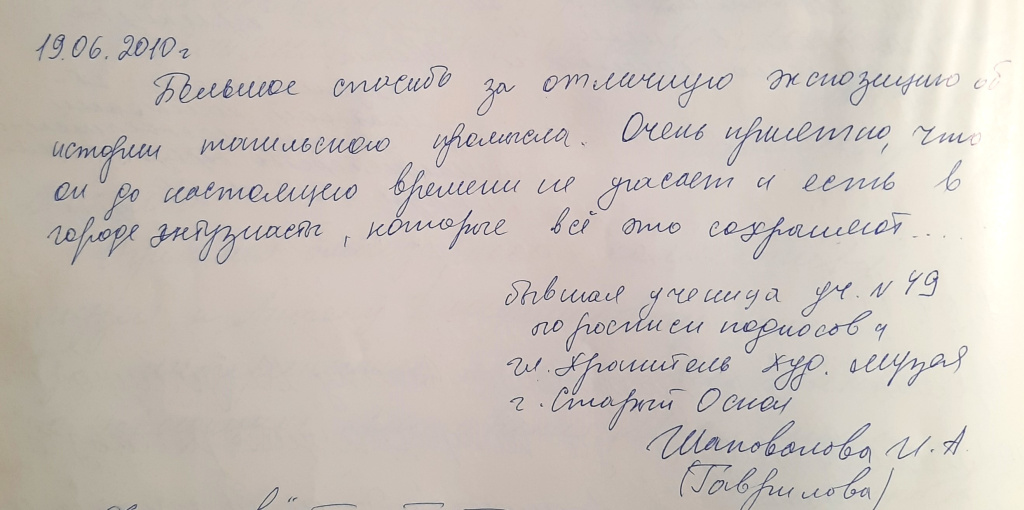 19.06.2010г
Большое спасибо за отличную экспозицию об
истории тагильского промысла. Очень приятно, что
он до настоящего времени не угасает и есть в
городе энтузиасты, которые всё это сохраняют....
бывшая ученица уч. N 49
по росписи подносов и
гл. хранитель худ. музея
г. Старый Оскол
Шаповалова И.А.
(Гаврилова)